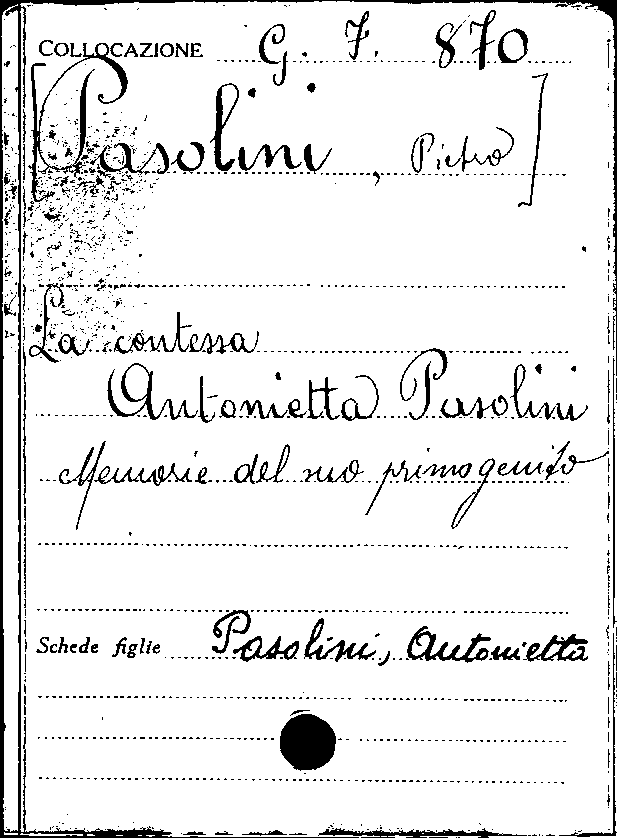 COLLOCAZIONE G. 7. 870
[Pasolini, Pietro]
La contessa
Antonietta Pasolini
Memorie del suo primogenito
Schede figlie Pasolini, Antonietta